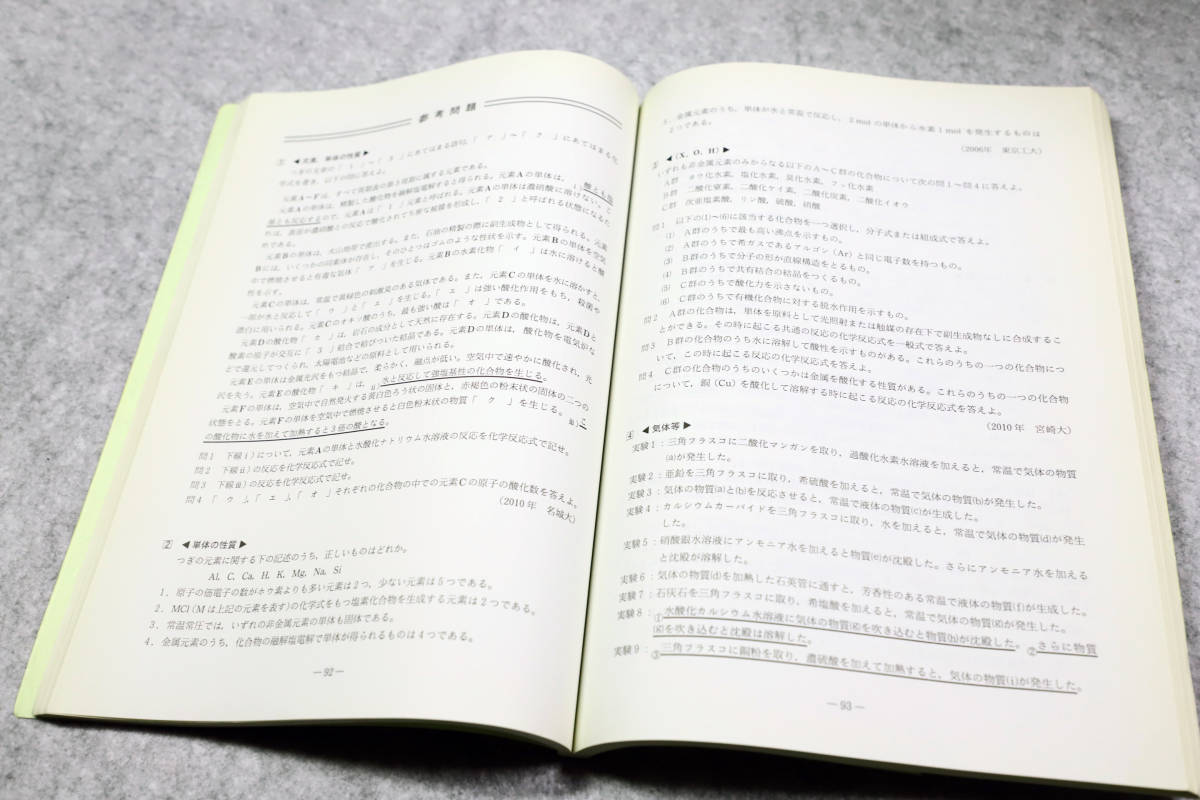 参考問題
① ◀元素，単体の性質▶
つぎの文章の「1」～「3」にあてはまる語句，「ア」～「ク」にあてはまる化
学式を書き，以下の問に答えよ。
元素A～Fは，すべて周期表の第3周期に属する元素である。
元素Aの単体は，精製した酸化物を融解塩電解すると得られる。元素Aの単体は，i)酸とも塩
基とも反応するので，元素Aは「1」元素と呼ばれる。元素Aの単体は濃硝酸に溶けない。こ
れは，表面が濃硝酸との反応で酸化されてち密な被膜を形成し，「2」と呼ばれる状態になるた
めである。
元素Bの単体は，火山地帯で産出する。また，石油の精製の際に副生成物として得られる。元素
Bには，いくつかの同素体が存在し，そのひとつはゴムのような性状を示す。元素Bの単体を空気
中で燃焼させると有毒な気体「ア」を生じる。元素Bの水素化物「イ」は水に溶けると酸
性を示す。
元素Cの単体は，常温で黄緑色の刺激臭のある気体である。また，元素Cの単体を水に溶かすと，
一部が水と反応して「ウ」と「エ」を生じる。「エ」は強い酸化作用をもち，殺菌や
漂白に用いられる。元素Cのオキソ酸のうち，最も強い酸は「オ」である。
元素Dの酸化物「カ」は，岩石の成分として天然に存在する。元素Dの酸化物は，元素Dと
酸素の原子が交互に「3」結合で結びついた結晶である。元素Dの単体は，酸化物を電気炉な
どで還元してつくられ，太陽電池などの原料として用いられる。
元素Eの単体は金属光沢をもつ結晶で，柔らかく，融点が低い。空気中で速やかに酸化され，光
沢を失う。元素Eの酸化物「キ」は，ii)水と反応して強塩基性の化合物を生じる。
元素Fの単体は，空気中で自然発火する黄白色ろう状の固体と，赤褐色の粉末状の固体の二つの
状態をとる。元素Fの単体を空気中で燃焼させると白色粉末状の物質「ク」を生じる。iii)こ
の酸化物に水を加えて加熱すると3価の酸となる。
問1 下線i)について，元素Aの単体と水酸化ナトリウム水溶液の反応を化学反応式で記せ。
問2 下線ii)の反応を化学反応式で記せ。
問3 下線iii)の反応を化学反応式で記せ。
問4 「ウ」，「エ」，「オ」それぞれの化合物の中での元素Cの原子の酸化数を答えよ。
(2010年 名城大)
② ◀単体の性質▶
つぎの元素に関する下の記述のうち，正しいものはどれか。
Al, C, Ca, H, K, Mg, Na, Si
1．原子の価電子の数がホウ素よりも多い元素は2つ，少ない元素は5つである。
2．MCl (Mは上記の元素を表す)の化学式をもつ塩素化合物を生成する元素は2つである。
3．常温常圧では，いずれの非金属元素の単体も固体である。
4．金属元素のうち，化合物の融解塩電解で単体が得られるものは4つである。
—92—
5．金属元素のうち，単体が水と常温で反応し，2molの単体から水素1molを発生するものは
2つである。
(2006年 東京工大)
③ ◀(X，O，H)▶
いずれも非金属元素のみからなる以下のA～C群の化合物について次の問1～問4に答えよ。
A群 ヨウ化水素，塩化水素，臭化水素，フッ化水素
B群 二酸化窒素，二酸化ケイ素，二酸化炭素，二酸化イオウ
C群 次亜塩素酸，リン酸，硫酸，硝酸
問1 以下の(1)～(6)に該当する化合物を一つ選択し，分子式または組成式で答えよ。
(1) A群のうちで最も高い沸点を示すもの。
(2) A群のうちで希ガスであるアルゴン(Ar)と同じ電子数を持つもの。
(3) B群のうちで分子の形が直線構造をとるもの。
(4) B群のうちで共有結合の結晶をつくるもの。
(5) C群のうちで酸化力を示さないもの。
(6) C群のうちで有機化合物に対する脱水作用を示すもの。
問2 A群の化合物は，単体を原料として光照射または触媒の存在下で副生成物なしに合成するこ
とができる。その時に起こる共通の反応の化学反応式を一般式で答えよ。
問3 B群の化合物のうち水に溶解して酸性を示すものがある。これらのうちの一つの化合物につ
いて，この時に起こる反応の化学反応式を答えよ。
問4 C群の化合物のうちのいくつかは金属を酸化する性質がある。これらのうちの一つの化合物
について，銅(Cu)を酸化して溶解する時に起こる反応の化学反応式を答えよ。
(2010年 宮崎大)
④ ◀気体等▶
実験1：三角フラスコに二酸化マンガンを取り，過酸化水素水溶液を加えると，常温で気体の物質
(a)が発生した。
実験2：亜鉛を三角フラスコに取り，希硫酸を加えると，常温で気体の物質(b)が発生した。
実験3：気体の物質(a)と(b)を反応させると，常温で液体の物質(c)が生成した。
実験4：カルシウムカーバイドを三角フラスコに取り，水を加えると，常温で気体の物質(d)が発生
した。
実験5：硝酸銀水溶液にアンモニア水を加えると物質(e)が沈殿した。さらにアンモニア水を加える
と沈殿が溶解した。
実験6：気体の物質(d)を加熱した石英管に通すと，芳香性のある常温で液体の物質(f)が生成した。
実験7：石灰石を三角フラスコに取り，希塩酸を加えると，常温で気体の物質(g)が発生した。
実験8：①水酸化カルシウム水溶液に気体の物質(g)を吹き込むと物質(h)が沈殿した。②さらに物質
(g)を吹き込むと沈殿は溶解した。
実験9：③三角フラスコに銅粉を取り，濃硫酸を加えて加熱すると，気体の物質(i)が発生した。
—93—